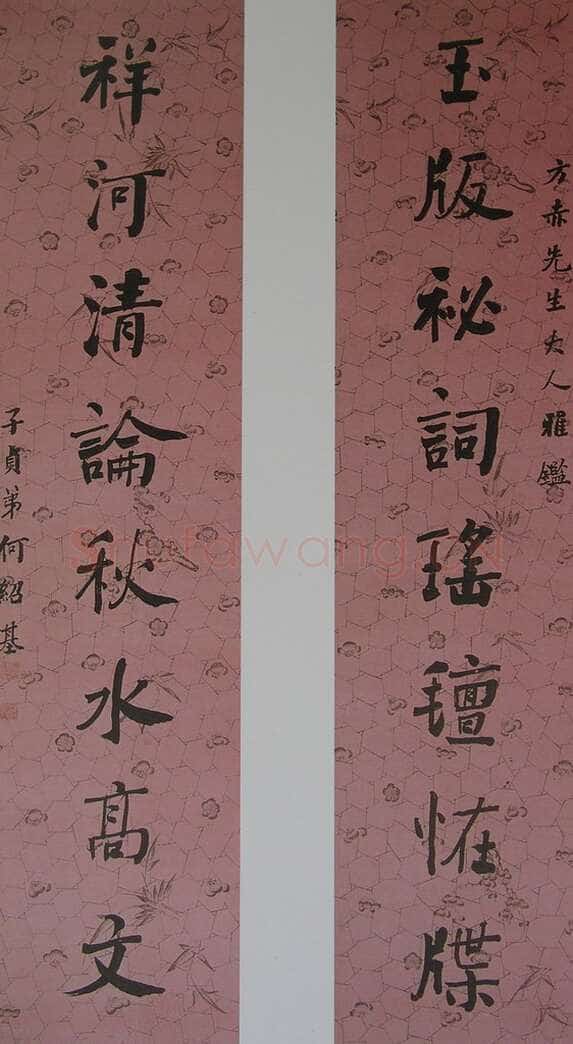 方赤先生大人雅鑑
玉版祕詞瑤壇恠牒
祥河清論秋水高文
子貞弟何紹基
Shufawang.cn